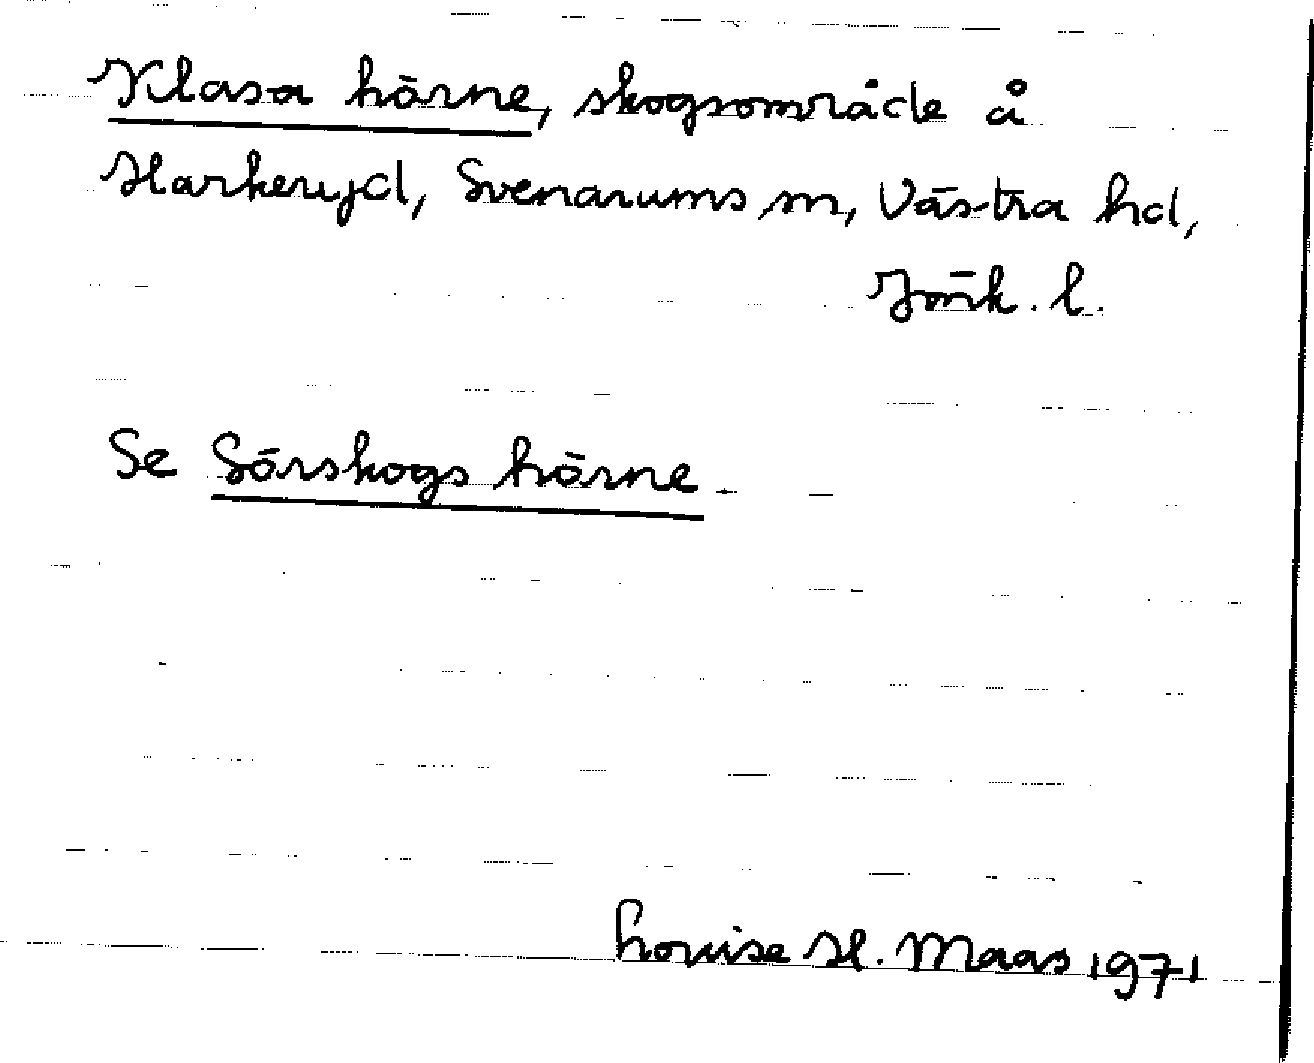 Klasa hörne, skogsområde å
Harkeryd, Svenarums sn, Västra hd,
Jönk. l.
Se Sörskogs hörne
Louise H. Maas 1971